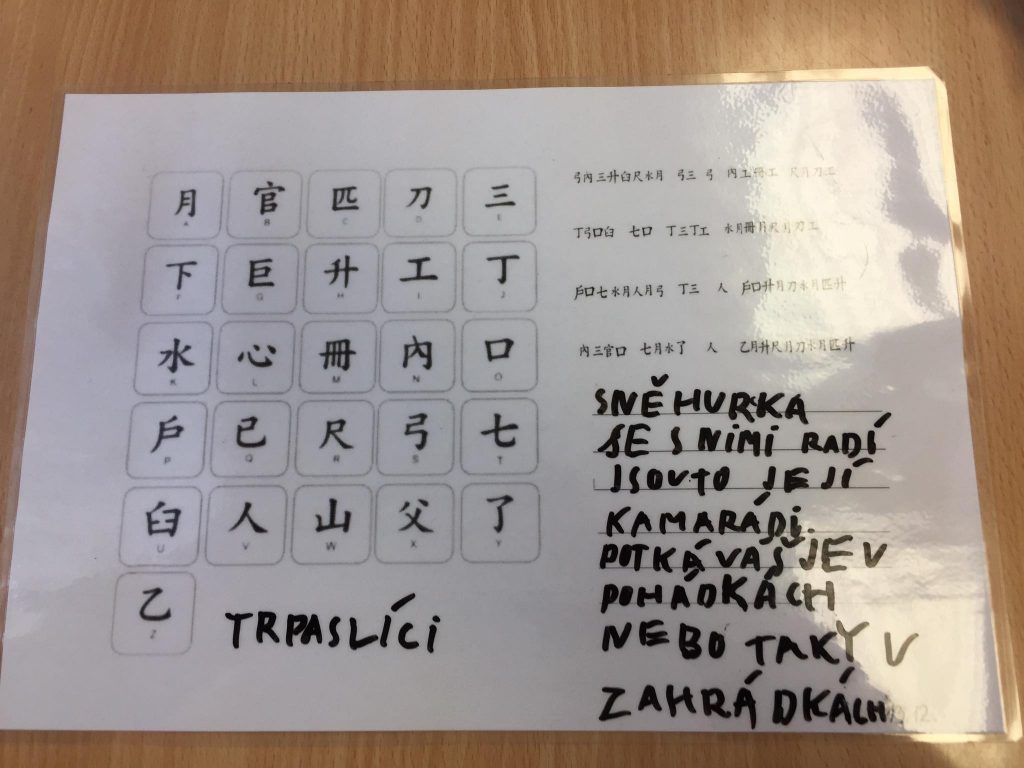 月 官 匹 刀 三
A B C D E
下 巨 升 工 丁
F G H I J
水 心 冊 內 口
K L M N O
戶 已 尺 弓 七
P Q R S T
臼 人 山 父 了
U V W X Y
乙
Z
TRPASLÍCI
弓內三升臼尺水月 弓三 弓 內工冊工 尺月刀工
丁弓口臼 七口 丁三丁工 水月冊月尺月刀工
戶口七水月人月弓 丁三 人 戶口升月刀水月匹升
內三官口 七月水了 人 乙月升尺月刀水月匹升
SNĚHURKA
SE S NIMI RADÍ
JSOUTO JEJÍ
KAMARÁDI.
POTKÁVAŠ JE V
POHÁDKÁCH
NEBO TAKY V
ZAHRÁDKÁCH